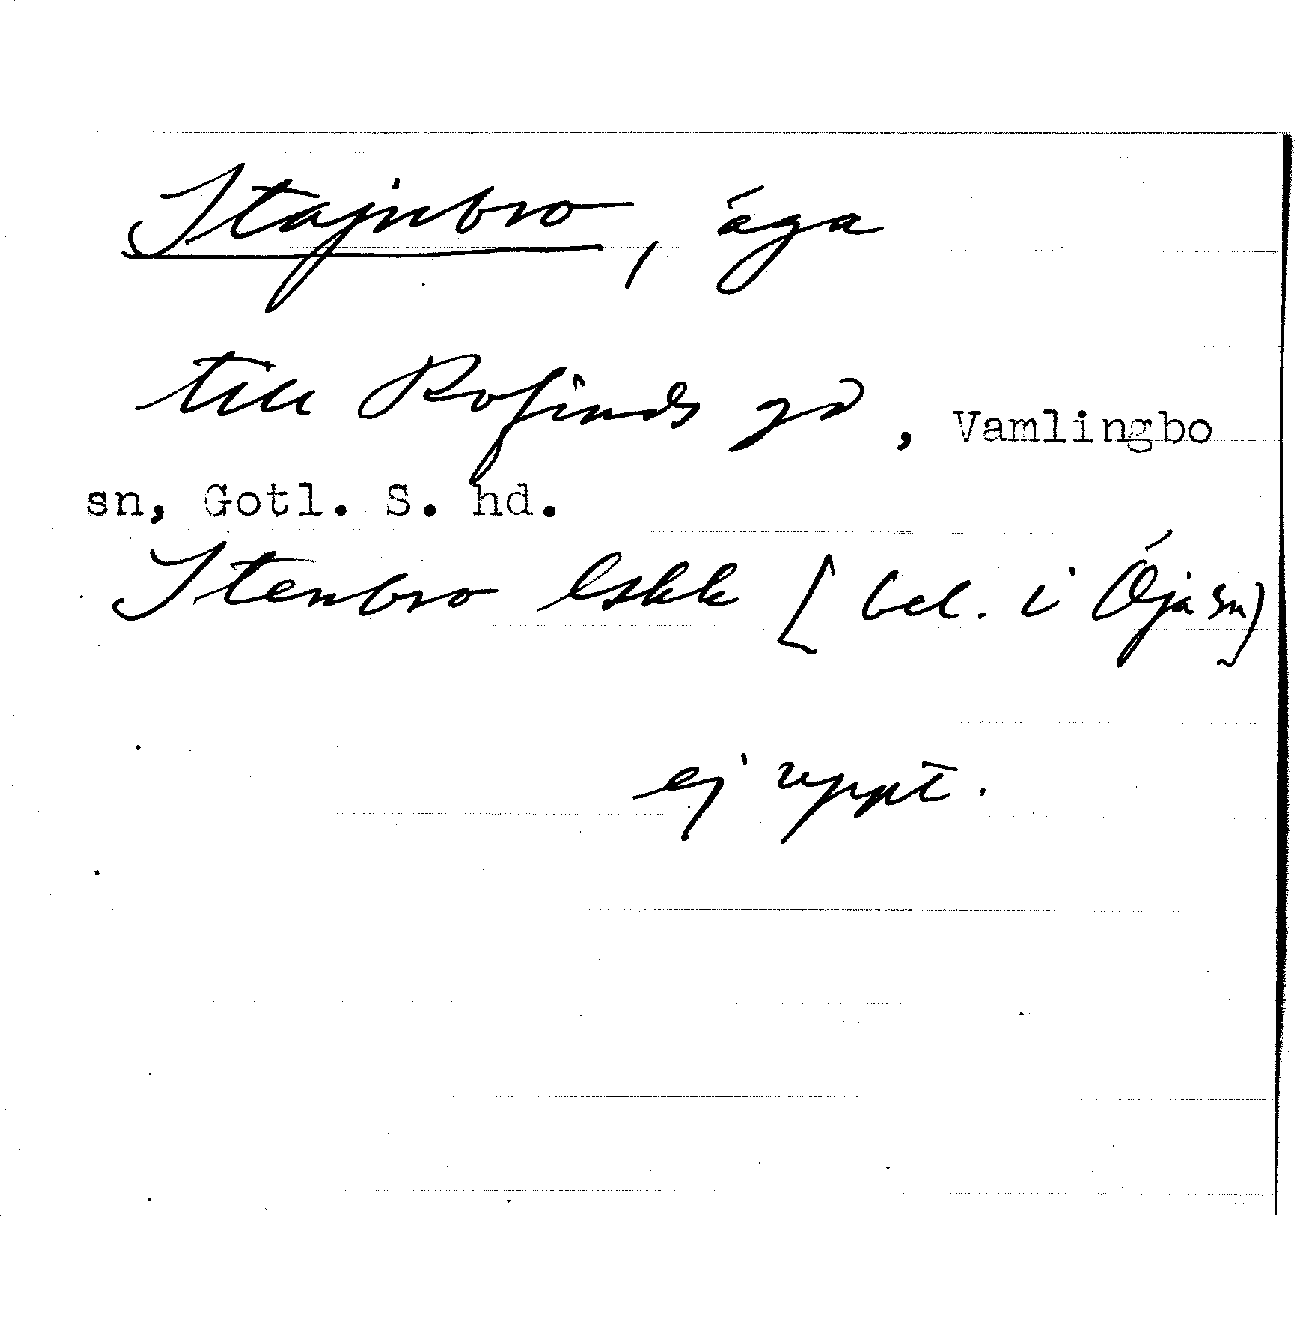 Stajnbro, äga
till Rofinds gd, Vamlingbo
sn, Gotl. S. hd.
Stenbro lskk [bel. i Öja sn)
ej uppt.